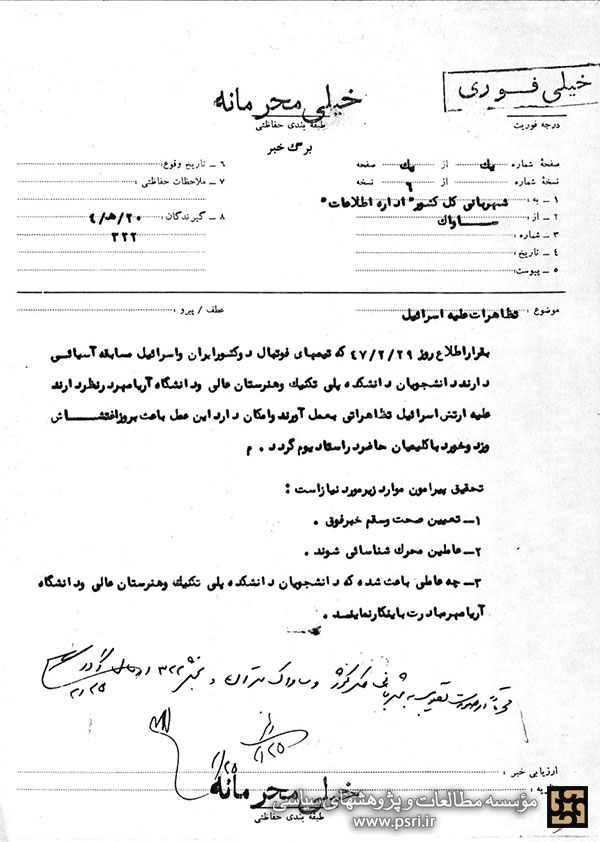 خیلی فوری
درجه فوریت
خیلی محرمانه
طبقه بندی حفاظتی
برگ خبر
صفحهٔ شماره یک از یک صفحه
نسخهٔ شماره از ۶ نسخه
۱ – به : شهربانی کل کشور "اداره اطلاعات"
۲ – از : ساواک
۳ – شماره :
۴ – تاریخ :
۵ – پیوست:
۶ – تاریخ وقوع:
۷ – ملاحظات حفاظتی :
۸ – گیرندگان : ۲۰/هـ/۴
۳۲۲
موضوع : تظاهرات علیه اسرائیل
عطف / پیرو :
بقرار اطلاع روز ۴۷/۲/۲۹ که تیمهای فوتبال دو کشور ایران و اسرائیل مسابقه آسیائی
دارند دانشجویان دانشکده پلی تکنیک و هنرستان عالی و دانشگاه آریامهر در نظر دارند
علیه ارتش اسرائیل تظاهراتی بعمل آورند و امکان دارد این عمل باعث بروز اغتشاش
و زد و خورد با کلیمیان حاضر در استادیوم گردد . م
تحقیق پیرامون موارد زیر مورد نیاز است :
۱– تعیین صحت و سقم خبر فوق .
۲– عاملین محرک شناسائی شوند .
۳– چه عاملی باعث شده که دانشجویان دانشکده پلی تکنیک و هنرستان عالی و دانشگاه
آریامهر مبادرت باینکار نمایند .
در صورت تصویب به شهربانی کل کشور و ساواک تهران و بخش ۳۲۲
۲/۲۵
۲/۲۵
۲/۲۵
ارزیابی خبر :
خیلی محرمانه
طبقه بندی حفاظتی
مؤسسه مطالعات و پژوهشهای سیاسی
www.psri.ir